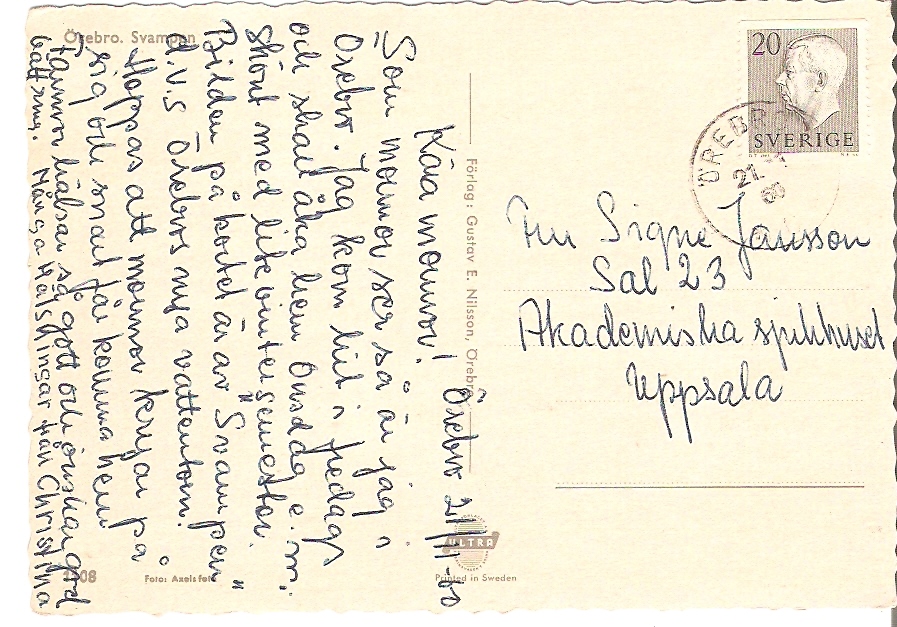 Örebro. Svampen
Örebro 21/11-60
Kära mormor!
Som mormor ser så är jag i
Örebro. Jag kom hit i fredags
och skall åka hem onsdag e.m.
Skönt med lite vintersemester.
Bilden på kortet är av "Svampen"
d.v.s Örebros nya vattentorn.
Hoppas att mormor kryar på
sig och snart får komma hem
Farmor hälsar så gott och önskar god
bättring. Många hälsningar från Christina
1108
Foto: Axels foto
Förlag: Gustav E. Nilsson, Örebro
ULTRA
Printed in Sweden
20
SVERIGE
ÖREBRO
21
60
Fru Signe Jansson
Sal 23
Akademiska sjukhuset
Uppsala